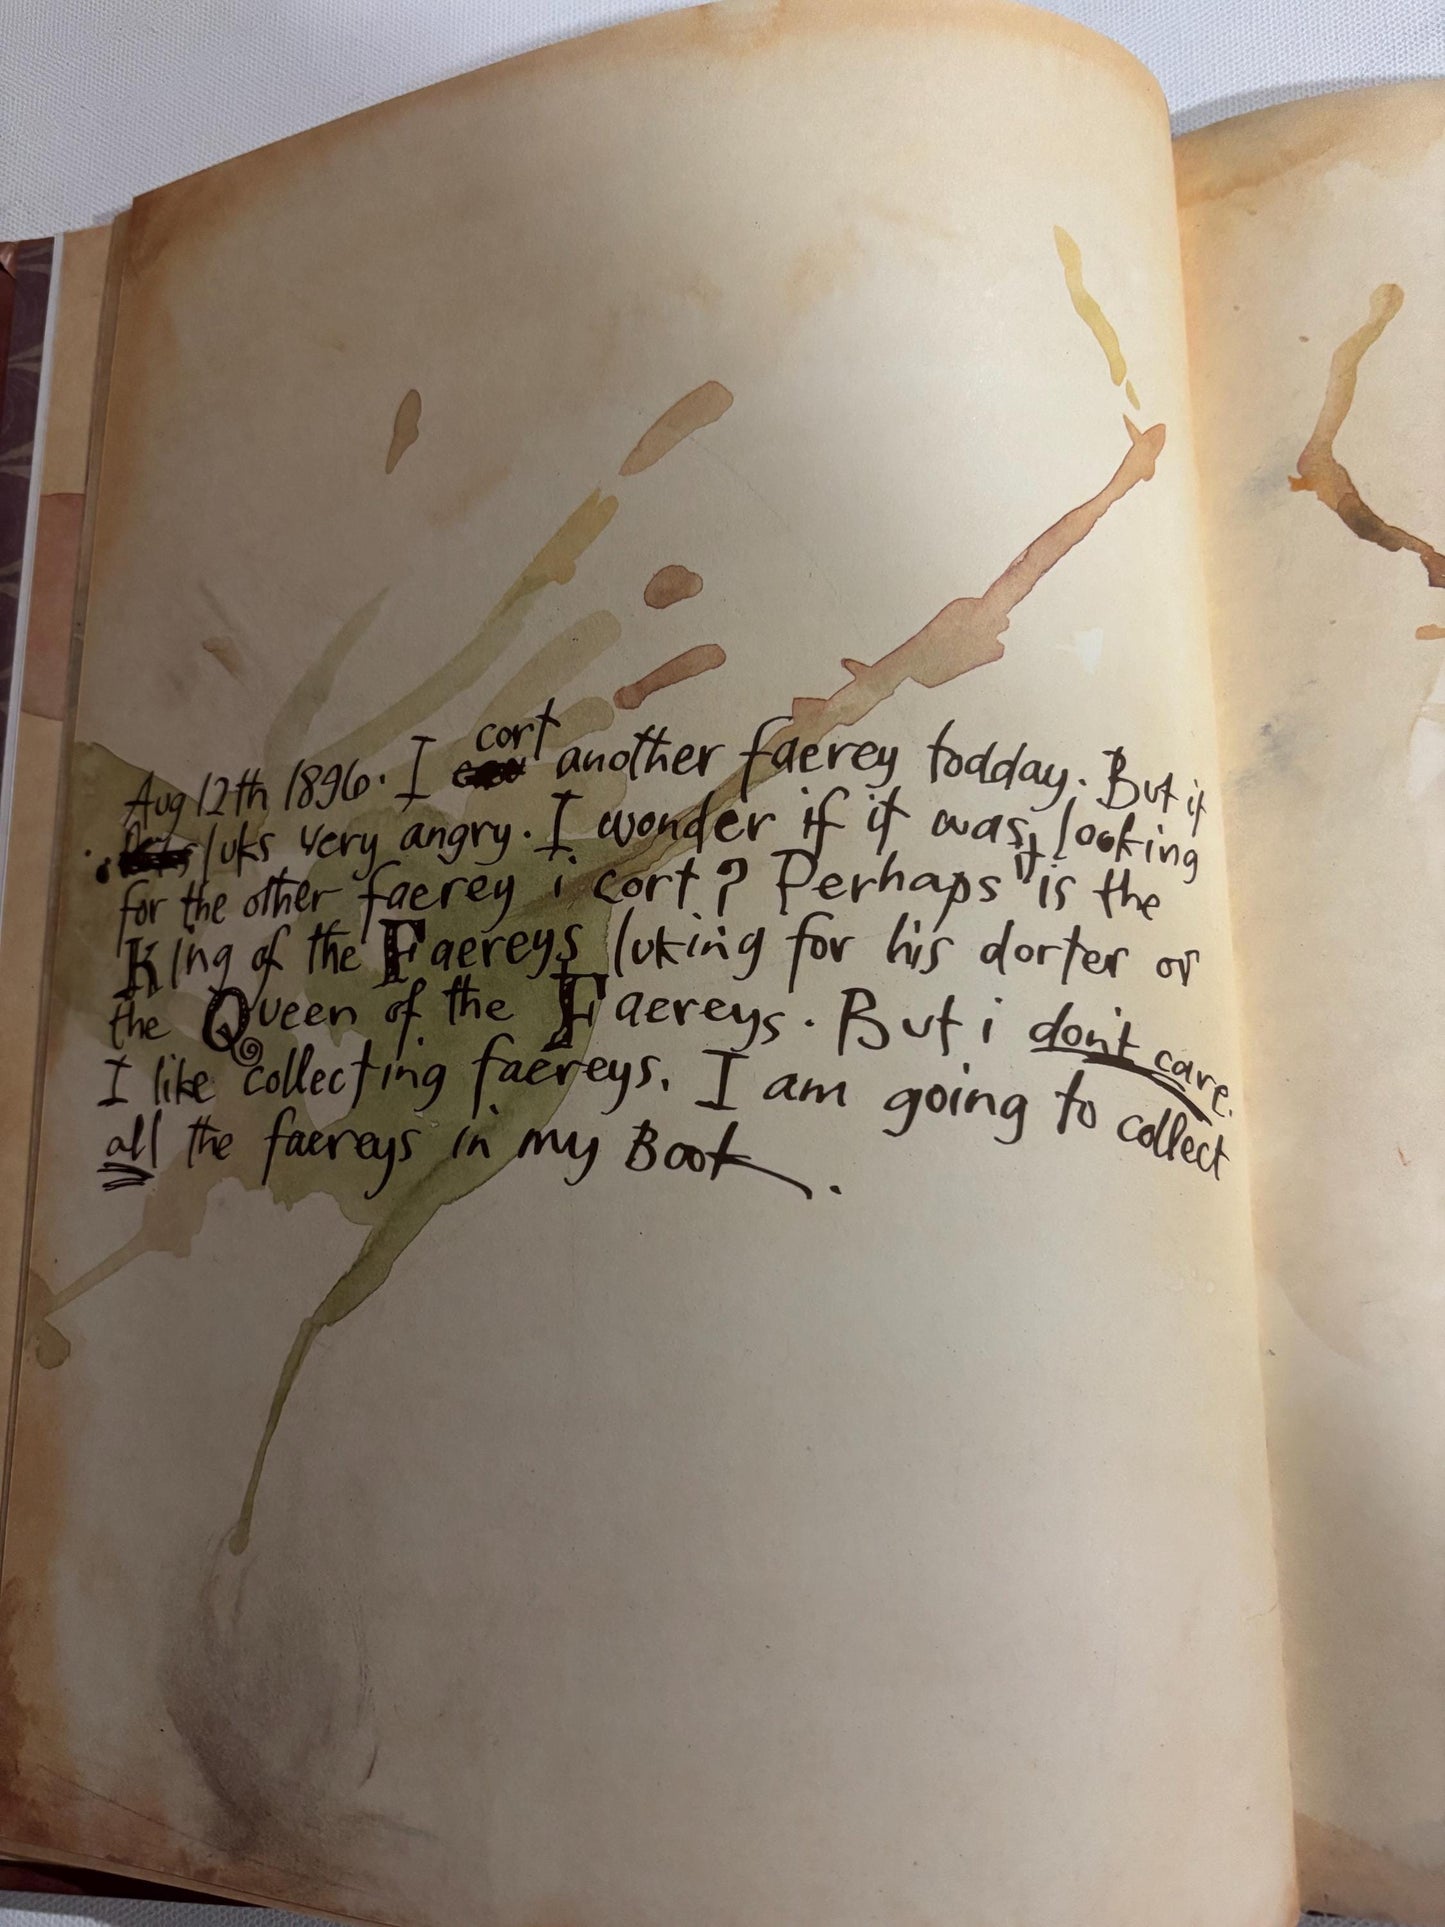 Aug 12th 1896. I cort another faerey todday. But it
luks very angry. I wonder if it was looking
for the other faerey i cort? Perhaps it is the
King of the Faereys luking for his dorter or
the Queen of the Faereys. But i don't care.
I like collecting faereys. I am going to collect
all the faereys in my Book.